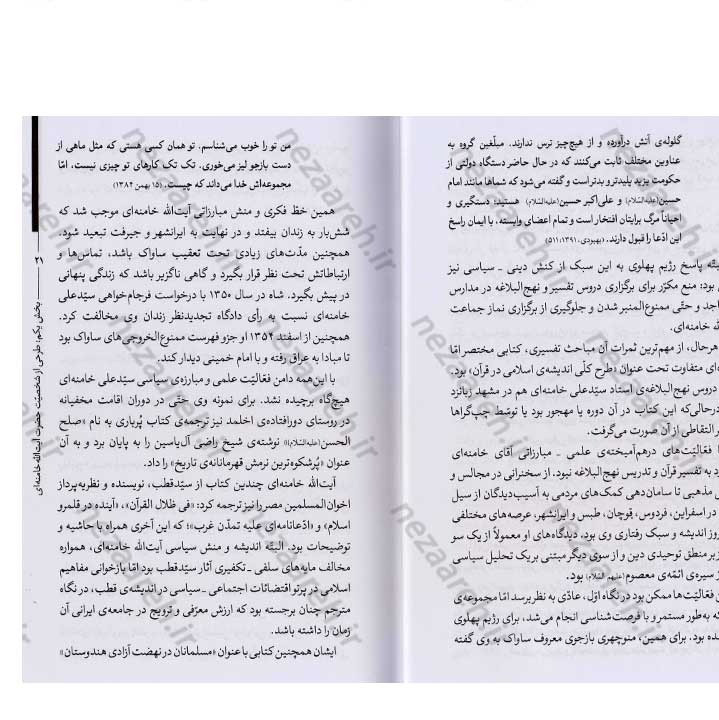 گلوله‌ی آتش درآورده و از هیچ‌چیز ترس ندارند. مبلّغین گروه به
عناوین مختلف ثابت می‌کنند که در حال حاضر دستگاه دولتی از
حکومت یزید پلیدتر و بدتر است و گفته می‌شود که شماها مانند امام
حسین(علیه‌السّلام) و علی‌اکبر حسین(علیه‌السّلام) هستید؛ دستگیری و
احیاناً مرگ برایتان افتخار است و تمام اعضای وابسته، با ایمان راسخ
این ادّعا را قبول دارند. (بهبودی، ۱۳۹۱: ۵۱۱)
پاسخ رژیم پهلوی به این سبک از کنش دینی ـ سیاسی نیز
بود: منع مکرّر برای برگزاری دروس تفسیر و نهج‌البلاغه در مدارس
و حتّی ممنوع‌المنبر شدن و جلوگیری از برگزاری نماز جماعت
خامنه‌ای.
هرحال، از مهم‌ترین ثمرات آن مباحث تفسیری، کتابی مختصر امّا
متفاوت تحت عنوان «طرح کلّی اندیشه‌ی اسلامی در قرآن» بود.
دروس نهج‌البلاغه‌ی استاد سیّدعلی خامنه‌ای هم در مشهد زبانزد
درحالی‌که این کتاب در آن دوره یا مهجور بود یا توسّط چپ‌گراها
التقاطی از آن صورت می‌گرفت.
فعّالیّت‌های درهم‌آمیخته‌ی علمی ـ مبارزاتی آقای خامنه‌ای
به تفسیر قرآن و تدریس نهج‌البلاغه نبود. از سخنرانی در مجالس و
مذهبی تا سامان‌دهی کمک‌های مردمی به آسیب‌دیدگان از سیل
در اسفراین، فردوس، قوچان، طبس و ایرانشهر، عرصه‌های مختلفی
اندیشه و سبک رفتاری وی بود. دیدگاه‌های او معمولاً از یک سو
بر منطق توحیدی دین و از سوی دیگر مبتنی بر یک تحلیل سیاسی
سیره‌ی ائمّه‌ی معصوم(علیهم السّلام) بود.
فعّالیّت‌ها ممکن بود در نگاه اوّل، عادّی به نظر برسد امّا مجموعه‌ی
به‌طور مستمر و با فرصت‌شناسی انجام می‌شد، برای رژیم پهلوی
بود. برای همین، منوچهری بازجوی معروف ساواک به وی گفته
من تو را خوب می‌شناسم. تو همان کسی هستی که مثل ماهی از
دست بازجو لیز می‌خوری. تک تک کارهای تو چیزی نیست، امّا
مجموعه‌اش خدا می‌داند که چیست. (۱۵ بهمن ۱۳۸۲)
همین خطّ فکری و منش مبارزاتی آیت‌الله خامنه‌ای موجب شد که
شش‌بار به زندان بیفتد و در نهایت به ایرانشهر و جیرفت تبعید شود.
همچنین مدّت‌های زیادی تحت تعقیب ساواک باشد، تماس‌ها و
ارتباطاتش تحت نظر قرار بگیرد و گاهی ناگزیر باشد که زندگی پنهانی
در پیش بگیرد. شاه در سال ۱۳۵۰ با درخواست فرجام‌خواهی سیّدعلی
خامنه‌ای نسبت به رأی دادگاه تجدیدنظر زندان وی مخالفت کرد.
همچنین از اسفند ۱۳۵۲ او جزو فهرست ممنوع‌الخروجی‌های ساواک بود
تا مبادا به عراق رفته و با امام خمینی دیدار کند.
با این‌همه دامن فعّالیّت علمی و مبارزه‌ی سیاسی سیّدعلی خامنه‌ای
هیچ‌گاه برچیده نشد. برای نمونه وی حتّی در دوران اقامت مخفیانه
در روستای دورافتاده‌ی اخلمد نیز ترجمه‌ی کتاب پُرباری به نام «صلح
الحسن(علیه‌السّلام)» نوشته‌ی شیخ راضی آل‌یاسین را به پایان برد و به آن
عنوان «پُرشکوه‌ترین نرمش قهرمانانه‌ی تاریخ» را داد.
آیت‌الله خامنه‌ای چندین کتاب از سیّدقطب، نویسنده و نظریه‌پرداز
اخوان‌المسلمین مصر را نیز ترجمه کرد: «فی ظلال القرآن»، «آینده در قلمرو
اسلام» و «ادّعانامه‌ای علیه تمدّن غرب»؛ که این آخری همراه با حاشیه و
توضیحات بود. البتّه اندیشه و منش سیاسی آیت‌الله خامنه‌ای، همواره
مخالف مایه‌های سلفی ـ تکفیری آثار سیّدقطب بود امّا بازخوانی مفاهیم
اسلامی در پرتو اقتضائات اجتماعی ـ سیاسی در اندیشه‌ی قطب، در نگاه
مترجم چنان برجسته بود که ارزش معرّفی و ترویج در جامعه‌ی ایرانی آن
زمان را داشته باشد.
ایشان همچنین کتابی با عنوان «مسلمانان در نهضت آزادی هندوستان»
۲۱
بخش یکم: طرحی از شخصیّت حضرت آیت‌الله خامنه‌ای
nezaareh.ir